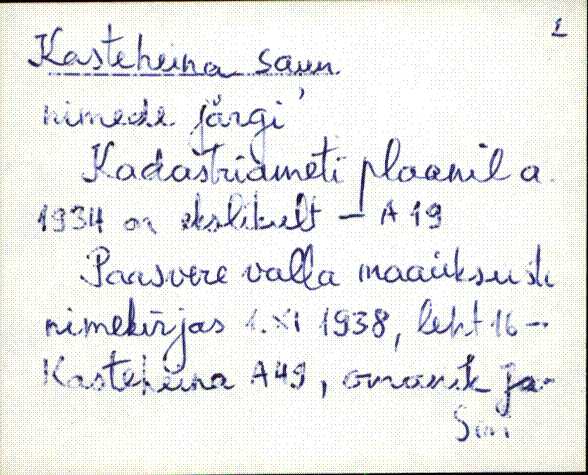 2
Kasteheina saun
nimede järgi
Kadastriameti plaanil a.
1934 on ekslikult – A 19
Paasvere valla maaüksuste
nimekirjas 1.XI 1938, leht 16 –
Kasteheina A49, omanik